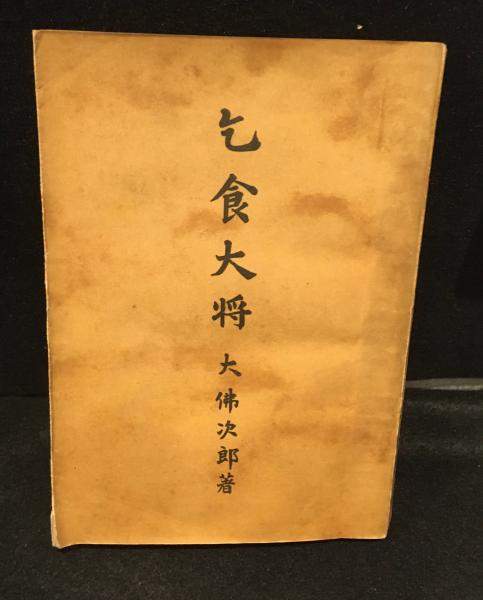 乞食大将
大佛次郎著